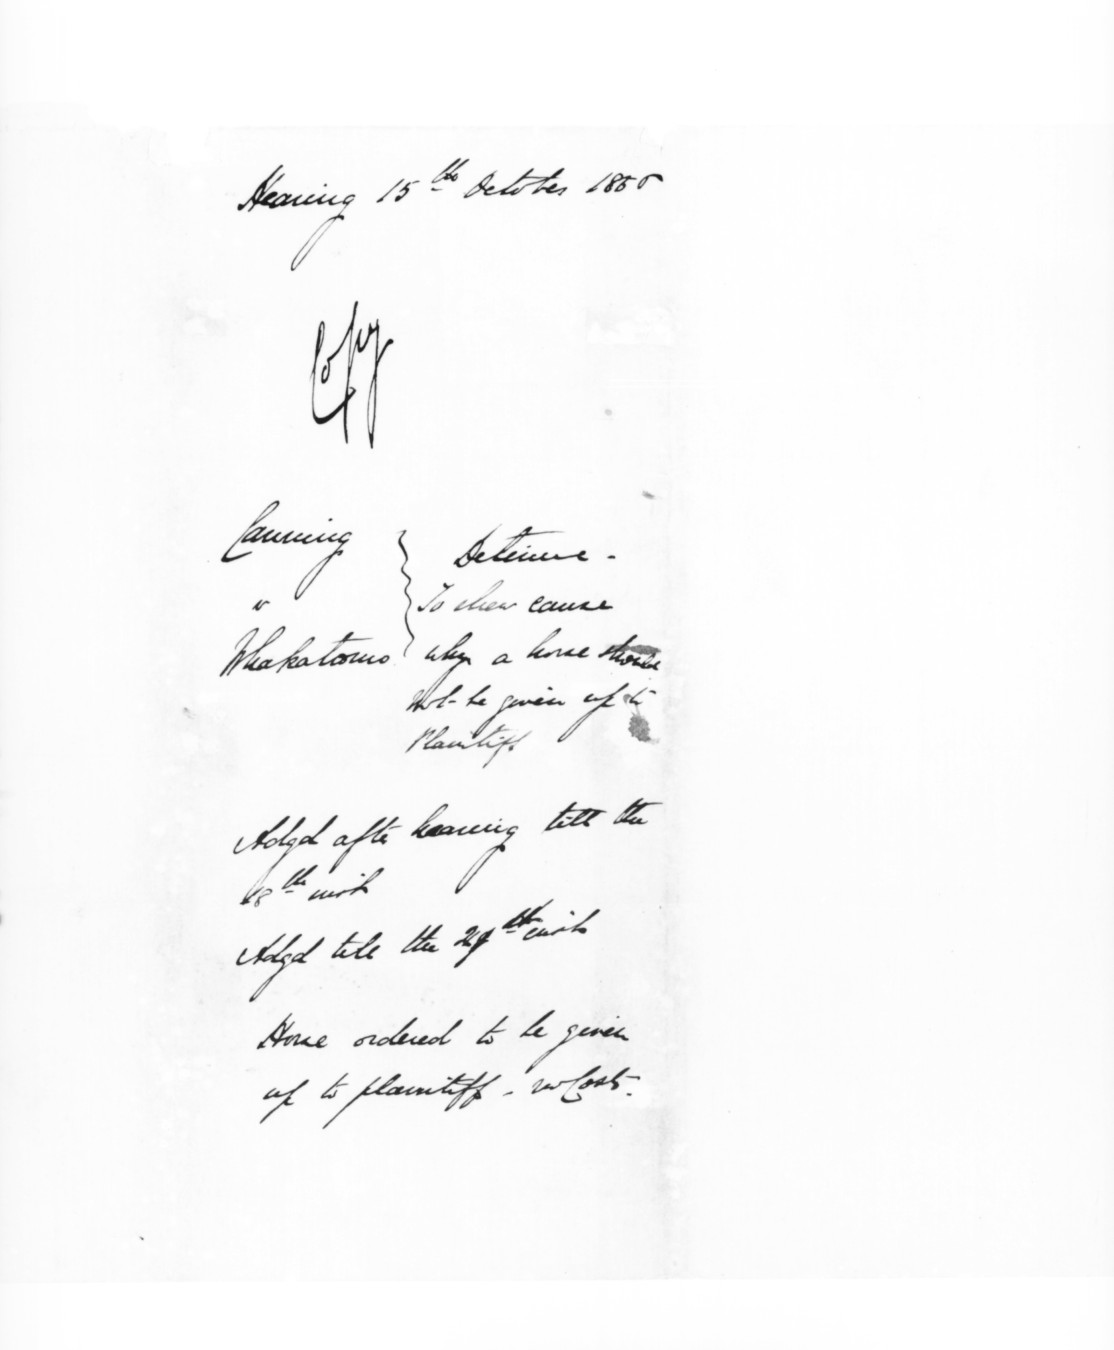 Hearing 15th October 18
Copy
Canning
v
Whakatomo
Detinue -
To shew cause
why a horse should
not be given up to
Plaintiff
Adgd after hearing till the
18th inst
Adgd till the 29th inst
Horse ordered to be given
up to plaintiff - no Costs.